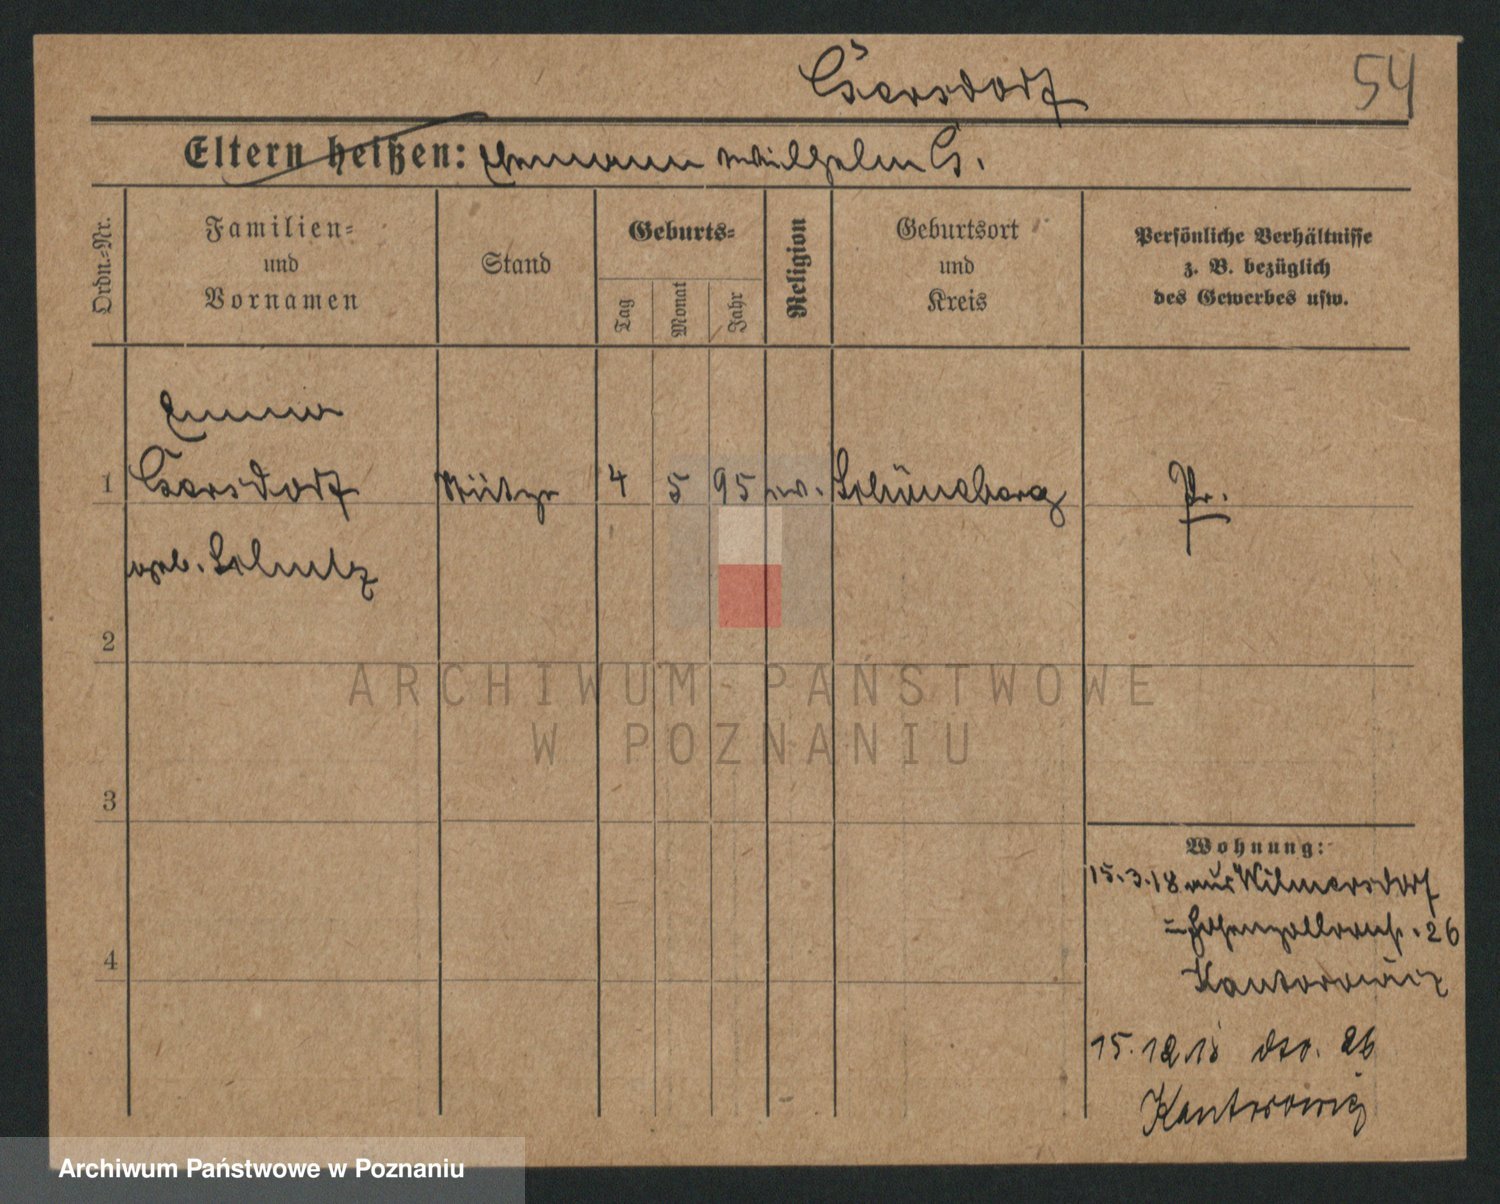 Gersdorf
54
Eltern heißen: Hermann Wilhelm G.
Ordn.-Nr.
Familien-
und
Vornamen
Stand
Geburts-
Tag
Monat
Jahr
Religion
Geburtsort
und
Kreis
Persönliche Verhältnisse
z. B. bezüglich
des Gewerbes usw.
Emma
1 Gersdorf Stütze 4 5 95 ev. Schöneberg Pr.
geb. Schulz
2
3
4
Wohnung:
15.3.18 aus Wilmersdorf
Hohenzollernstr. 26
Kantorowicz
15.12.18 dto. 26
Kantorowicz
ARCHIWUM PAŃSTWOWE
W POZNANIU
Archiwum Państwowe w Poznaniu